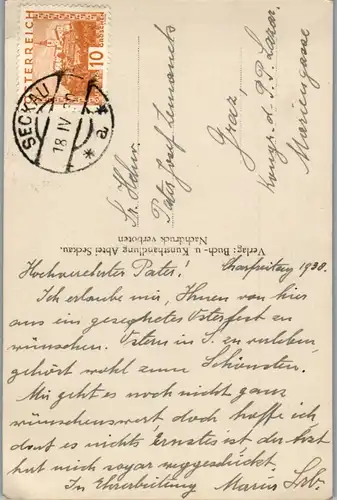 ÖSTERREICH
10
GROSCHEN
SECKAU
18 IV
* a *
Sr. Hochw.
Pater Josef
Graz,
Kongr. d. P. P. Lazar.
Mariengasse
Verlag: Buch- u. Kunsthandlung Abtei Seckau.
Nachdruck verboten
Hochverehrter Pater! Charfreitag 1930.
Ich erlaube mir, Ihnen von hier
aus ein gesegnetes Osterfest zu
wünschen. Ostern in S. zu verleben,
gehört wohl zum Schönsten.
Mir geht es noch nicht ganz
wünschenswert doch hoffe ich
dass es nichts Ernstes ist der Arzt
hat mich sogar weggeschickt.
In Ehrerbietung Marius